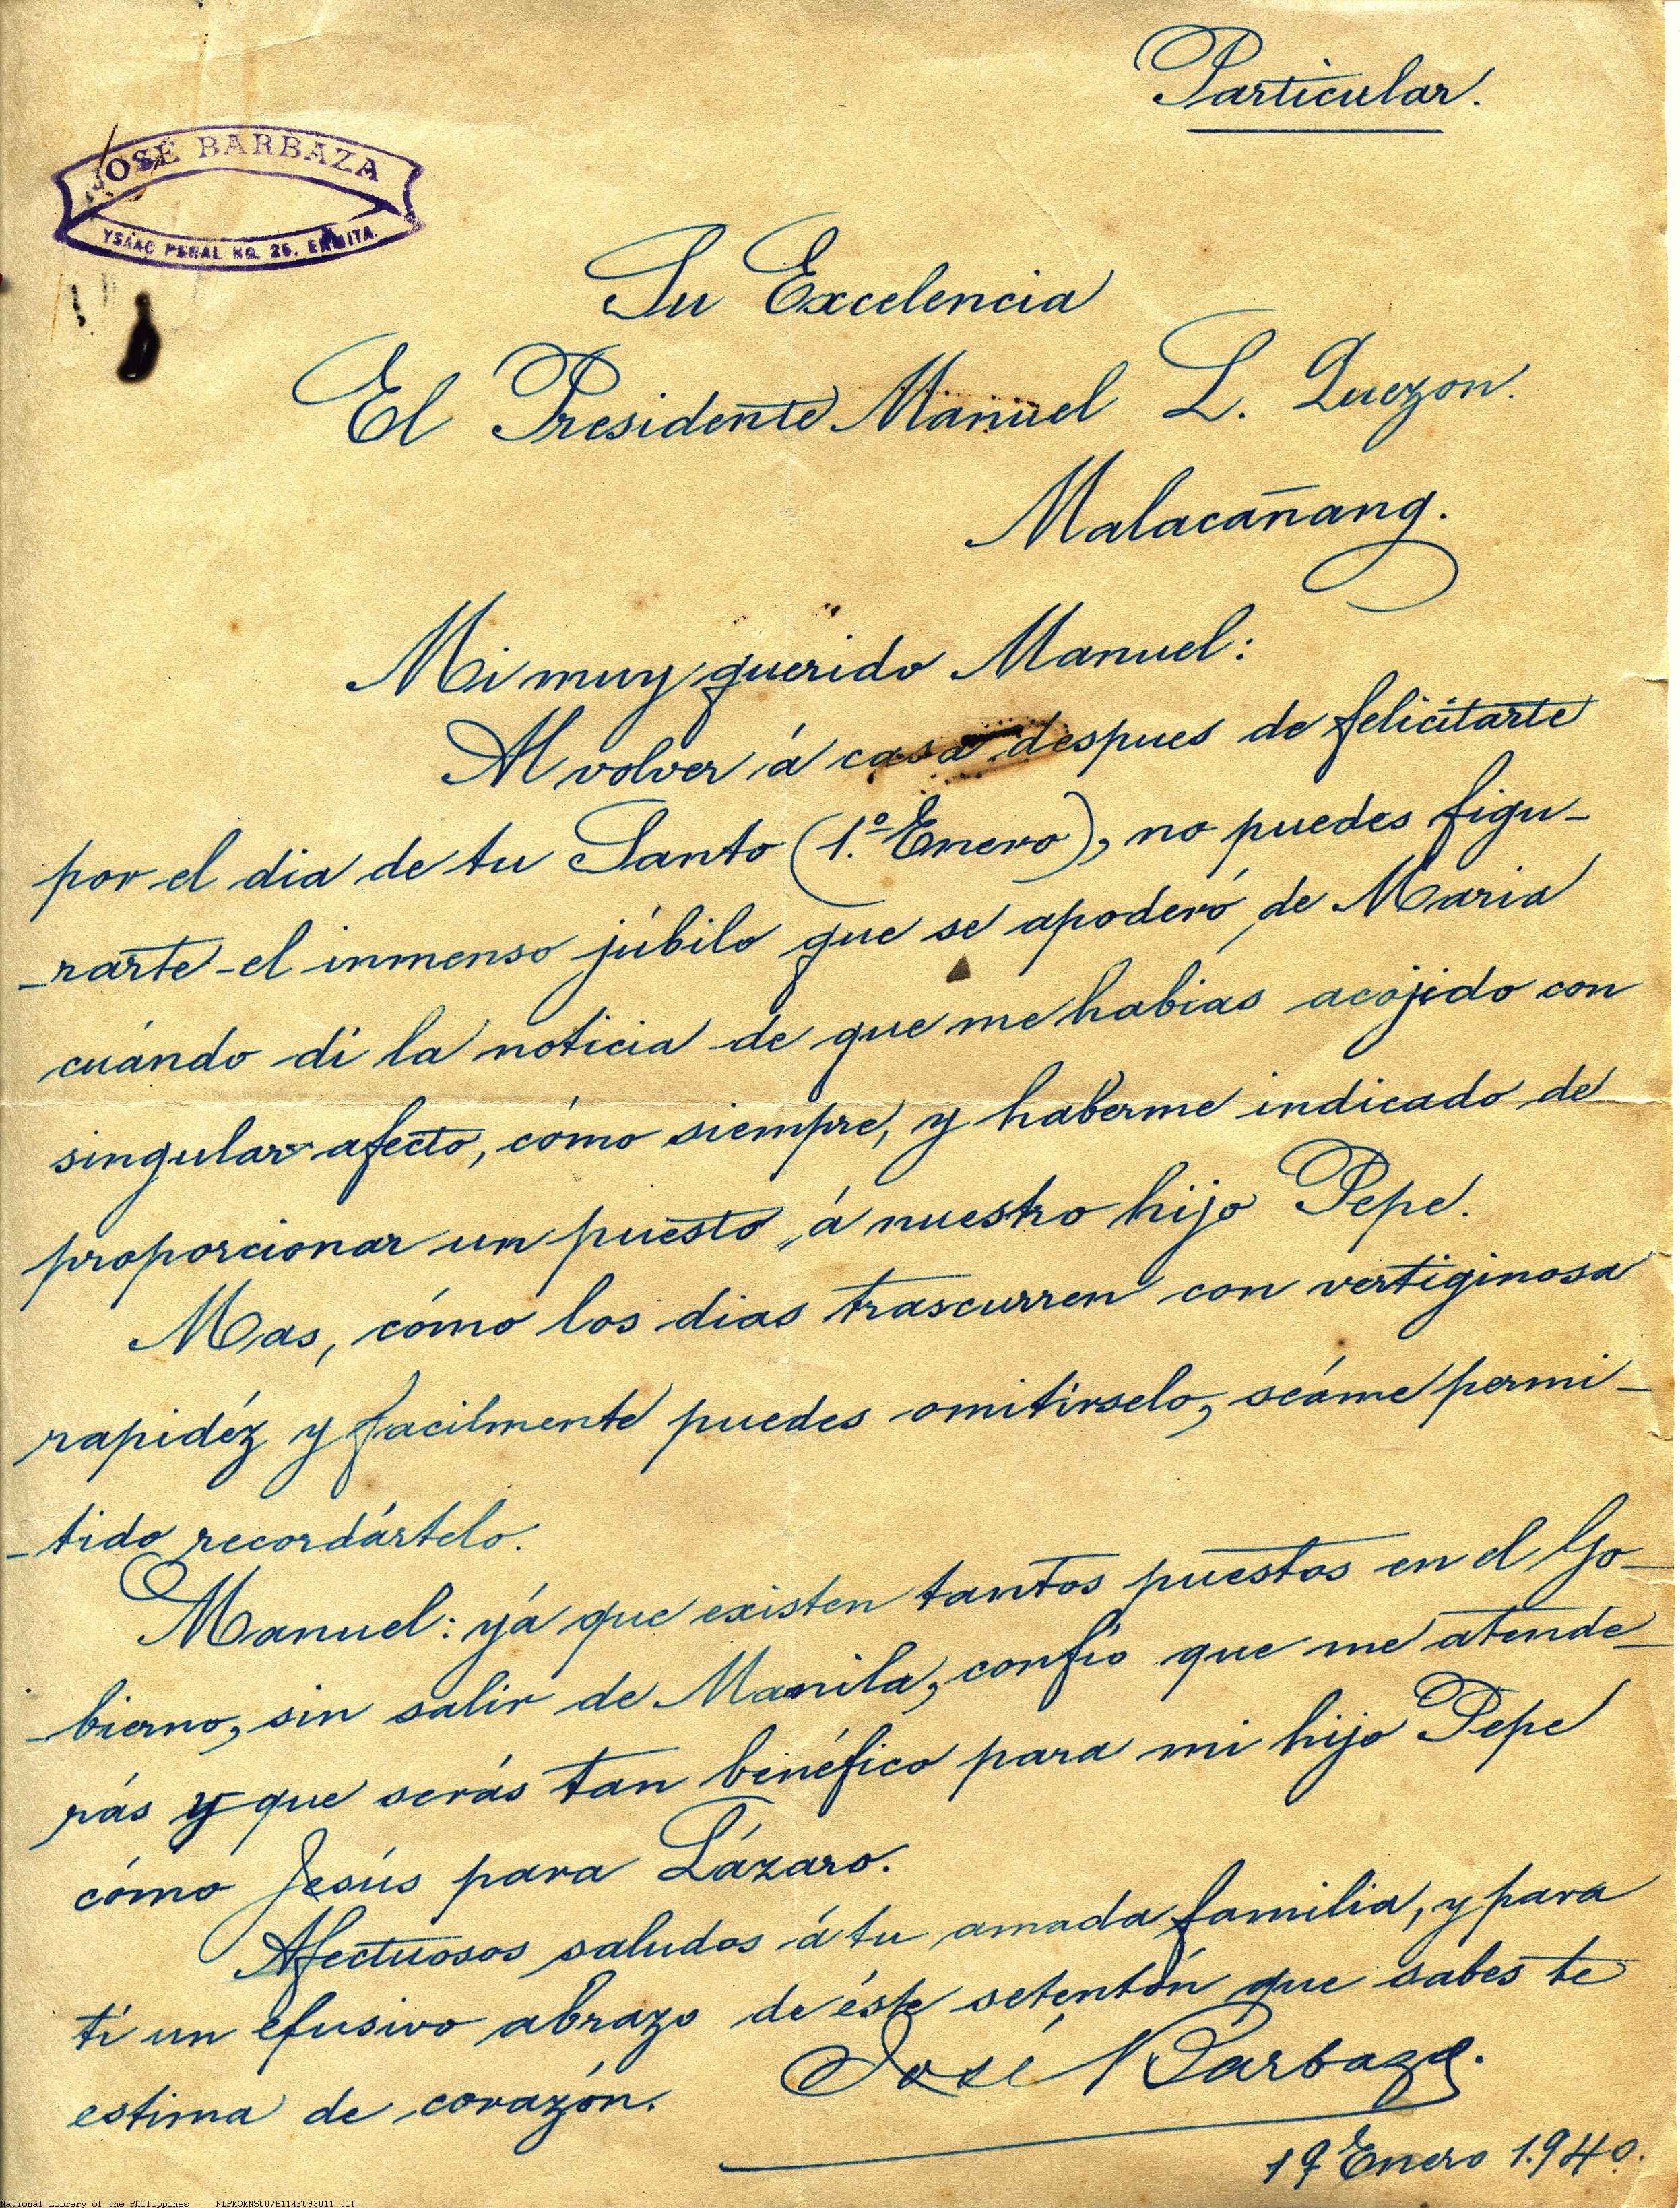 Particular.
JOSÉ BARBAZA
YSAAC PERAL NO. 26, ERMITA.
Su Excelencia
El Presidente Manuel L. Quezon.
Malacañang.
Mi muy querido Manuel:
Al volver á casa despues de felicitarte
por el dia de tu Santo (1.º Enero), no puedes figu-
-rarte el inmenso júbilo que se apoderó de Maria
cuándo dí la noticia de que me habias acojido con
singular afecto, cómo siempre, y haberme indicado de
proporcionar un puesto á nuestro hijo Pepe.
Mas, cómo los dias trascurren con vertiginosa
rapidéz y facilmente puedes omitirselo, seáme permi-
-tido recordártelo.
Manuel: yá que existen tantos puestos en el Go-
-bierno, sin salir de Manila, confío que me atende-
rás y que serás tan benéfico para mi hijo Pepe
cómo Jesús para Lázaro.
Afectuosos saludos á tu amada familia, y para
tí un efusivo abrazo de éste setentón que sabes te
estima de corazón.
José Barbaza.
19 Enero 1.940.
National Library of the Philippines NLPMQMNS007B114F093011.tif